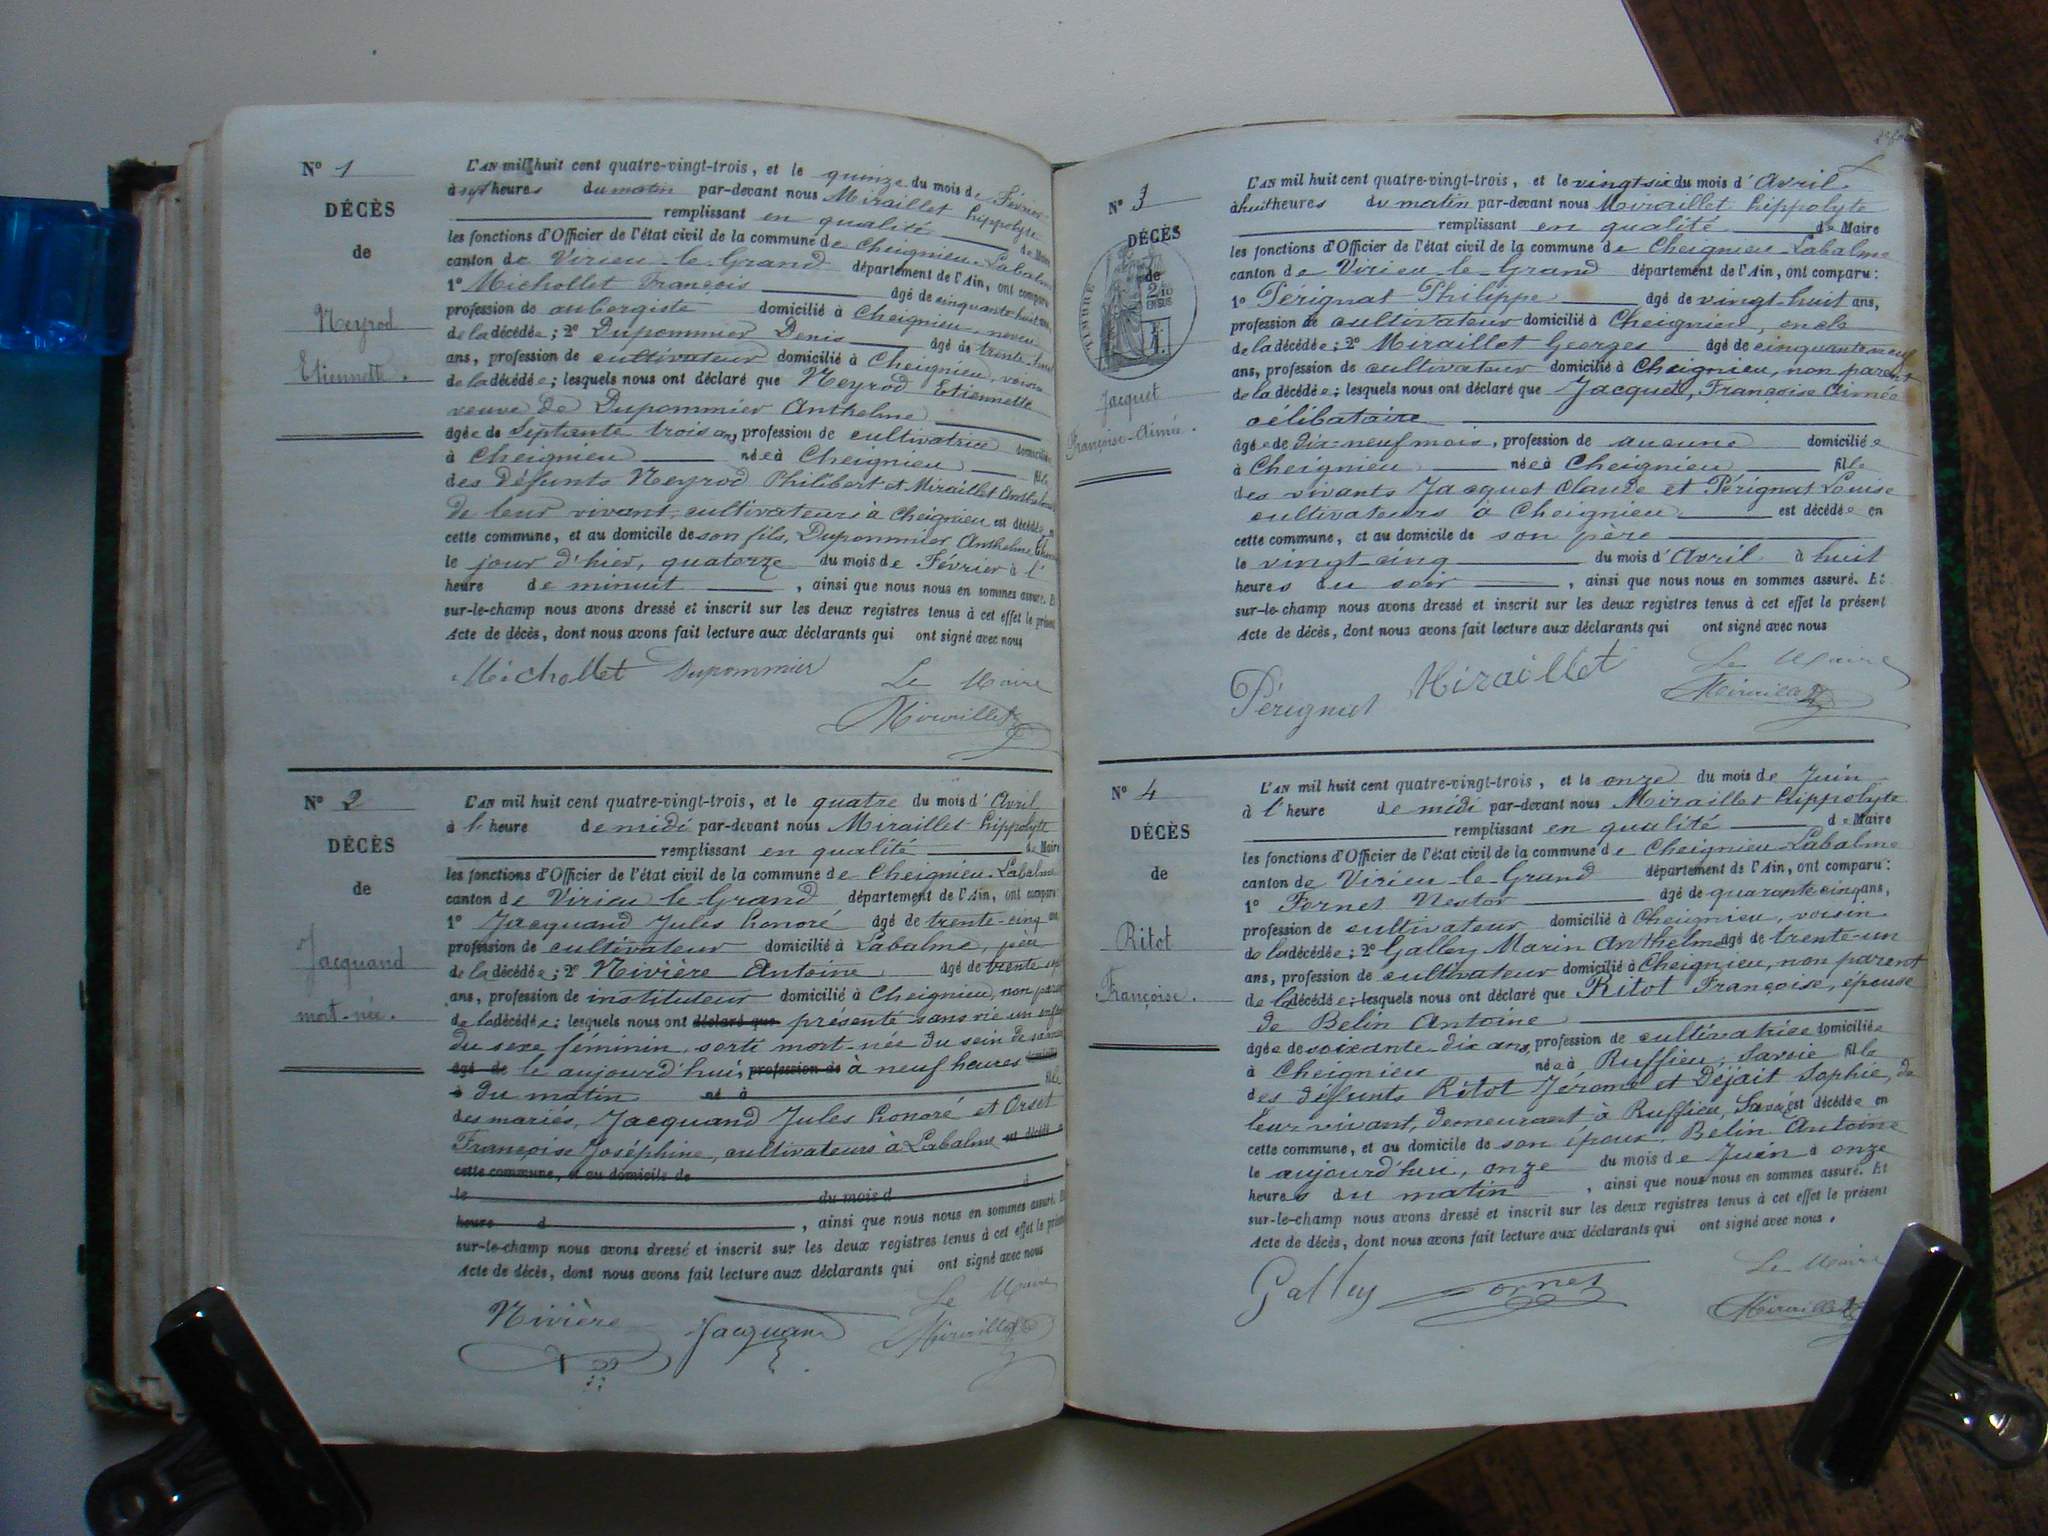 N° 1
DÉCÈS
de
Neyrod
Etiennette.
L'AN mil huit cent quatre-vingt-trois, et le quinze du mois de Février
à sept heures du matin par-devant nous Miraillet hippolyte
remplissant en qualité de Maire
les fonctions d'Officier de l'état civil de la commune de Cheignieu-Labalme
canton de Virieu-le-Grand département de l'Ain, ont comparu
1° Michollet François âgé de cinquante huit ans,
profession de aubergiste domicilié à Cheignieu, neveu
de la décédée; 2° Dupommier Denis âgé de trente
ans, profession de cultivateur domicilié à Cheignieu, voisin
de la décédée; lesquels nous ont déclaré que Neyrod Etiennette
veuve de Dupommier Anthelme
âgée de septante trois ans, profession de cultivatrice domiciliée
à Cheignieu née à Cheignieu fille
des défunts Neyrod Philibert et Miraillet
de leur vivant, cultivateurs à Cheignieu est décédée en
cette commune, et au domicile de son fils, Dupommier Anthelme
le jour d'hier, quatorze du mois de Février à l'
heure de minuit, ainsi que nous nous en sommes assuré. Et
sur-le-champ nous avons dressé et inscrit sur les deux registres tenus à cet effet le présent
Acte de décès, dont nous avons fait lecture aux déclarants qui ont signé avec nous
Michollet Dupommier Le Maire
Miraillet
N° 2
DÉCÈS
de
Jacquand
mort-née.
L'AN mil huit cent quatre-vingt-trois, et le quatre du mois d'Avril
à l'heure de midi par-devant nous Miraillet hippolyte
remplissant en qualité de Maire
les fonctions d'Officier de l'état civil de la commune de Cheignieu-Labalme
canton de Virieu le-Grand département de l'Ain, ont comparu
1° Jacquand Jules honoré âgé de trente-cinq ans
profession de cultivateur domicilié à Labalme, père
de la décédée; 2° Nivière Antoine âgé de trente sept
ans, profession de instituteur domicilié à Cheignieu, non parent
de la décédée; lesquels nous ont déclaré que présenté sans vie un enfant
du sexe féminin, sorti mort-née du sein de sa mère
âgé de le aujourd'hui, profession de à neuf heures domicilié
à du matin né à fille
des mariés, Jacquand Jules honoré et Orset
Françoise Joséphine, cultivateurs à Labalme est décédé en
cette commune, et au domicile de
le du mois d à
heure d, ainsi que nous nous en sommes assuré. Et
sur-le-champ nous avons dressé et inscrit sur les deux registres tenus à cet effet le présent
Acte de décès, dont nous avons fait lecture aux déclarants qui ont signé avec nous
Le Maire
Nivière Jacquand Miraillet
N° 3
DÉCÈS
de
TIMBRE
Jacquet
Françoise-Aimée.
L'AN mil huit cent quatre-vingt-trois, et le vingt six du mois d'Avril
à huit heures du matin par-devant nous Miraillet hippolyte
remplissant en qualité de Maire
les fonctions d'Officier de l'état civil de la commune de Cheignieu-Labalme
canton de Virieu-le-Grand département de l'Ain, ont comparu:
1° Pérignat Philippe âgé de vingt-huit ans,
profession de cultivateur domicilié à Cheignieu, oncle
de la décédée; 2° Miraillet Georges âgé de cinquante neuf
ans, profession de cultivateur domicilié à Cheignieu, non parent
de la décédée; lesquels nous ont déclaré que Jacquet, Françoise Aimée
célibataire
âgée de dix-neuf mois, profession de aucune domiciliée
à Cheignieu née à Cheignieu fille
des vivants Jacquet Claude et Pérignat Louise
cultivateurs à Cheignieu est décédée en
cette commune, et au domicile de son père
le vingt-cinq du mois d'Avril à huit
heures du soir, ainsi que nous nous en sommes assuré. Et
sur-le-champ nous avons dressé et inscrit sur les deux registres tenus à cet effet le présent
Acte de décès, dont nous avons fait lecture aux déclarants qui ont signé avec nous
Pérignat Miraillet Le Maire
Miraillet
N° 4
DÉCÈS
de
Ritot
Françoise.
L'AN mil huit cent quatre-vingt-trois, et le onze du mois de Juin
à l'heure de midi par-devant nous Miraillet hippolyte
remplissant en qualité de Maire
les fonctions d'Officier de l'état civil de la commune de Cheignieu-Labalme
canton de Virieu-le-Grand département de l'Ain, ont comparu:
1° Fornet Nestor âgé de quarante cinq ans,
profession de cultivateur domicilié à Cheignieu, voisin
de la décédée; 2° Galley Marin Anthelme âgé de trente-un
ans, profession de cultivateur domicilié à Cheignieu, non parent
de la décédée; lesquels nous ont déclaré que Ritot Françoise, épouse
de Belin Antoine
âgée de soixante-dix ans, profession de cultivatrice domiciliée
à Cheignieu née à Ruffieu, Savoie fille
des défunts Ritot Jérome et Déjait Sophie, de
leur vivant, demeurant à Ruffieu, Savoie est décédée en
cette commune, et au domicile de son époux, Belin Antoine
le aujourd'hui, onze du mois de Juin à onze
heures du matin, ainsi que nous nous en sommes assuré. Et
sur-le-champ nous avons dressé et inscrit sur les deux registres tenus à cet effet le présent
Acte de décès, dont nous avons fait lecture aux déclarants qui ont signé avec nous.
Galley Fornet Le Maire
Miraillet